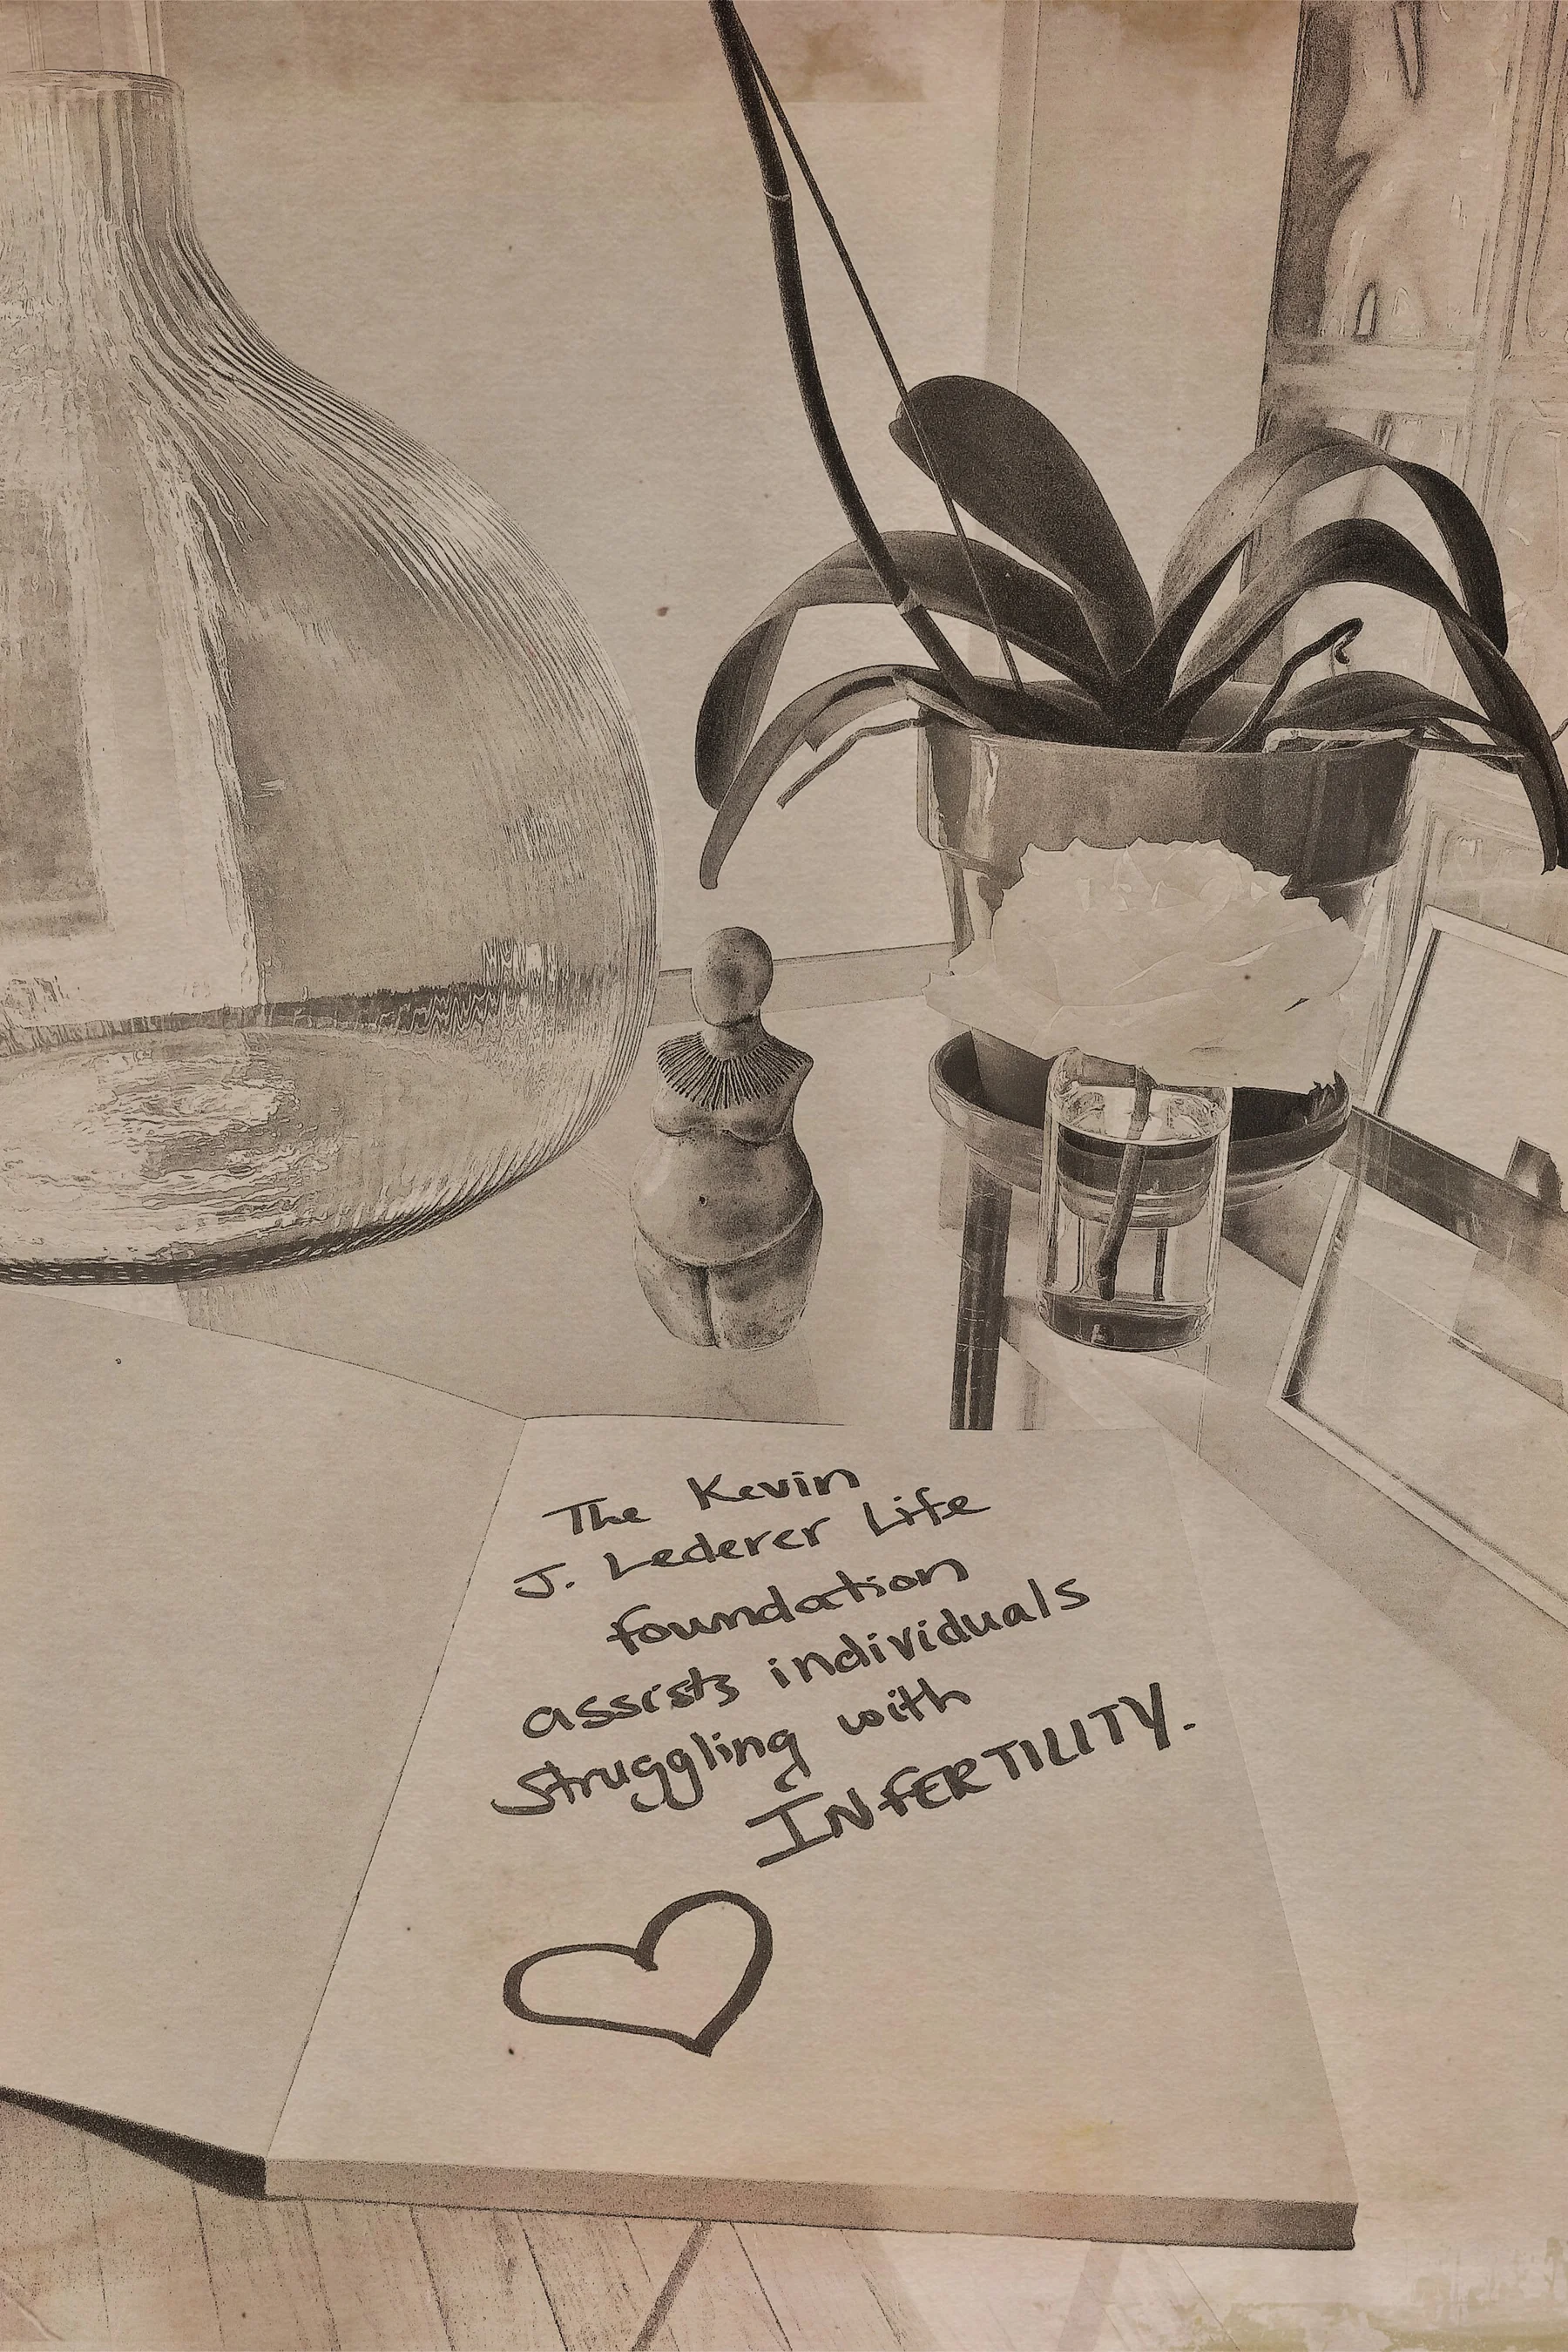 The Kevin
J. Lederer Life
foundation
assists individuals
struggling with
INfERTILITY.